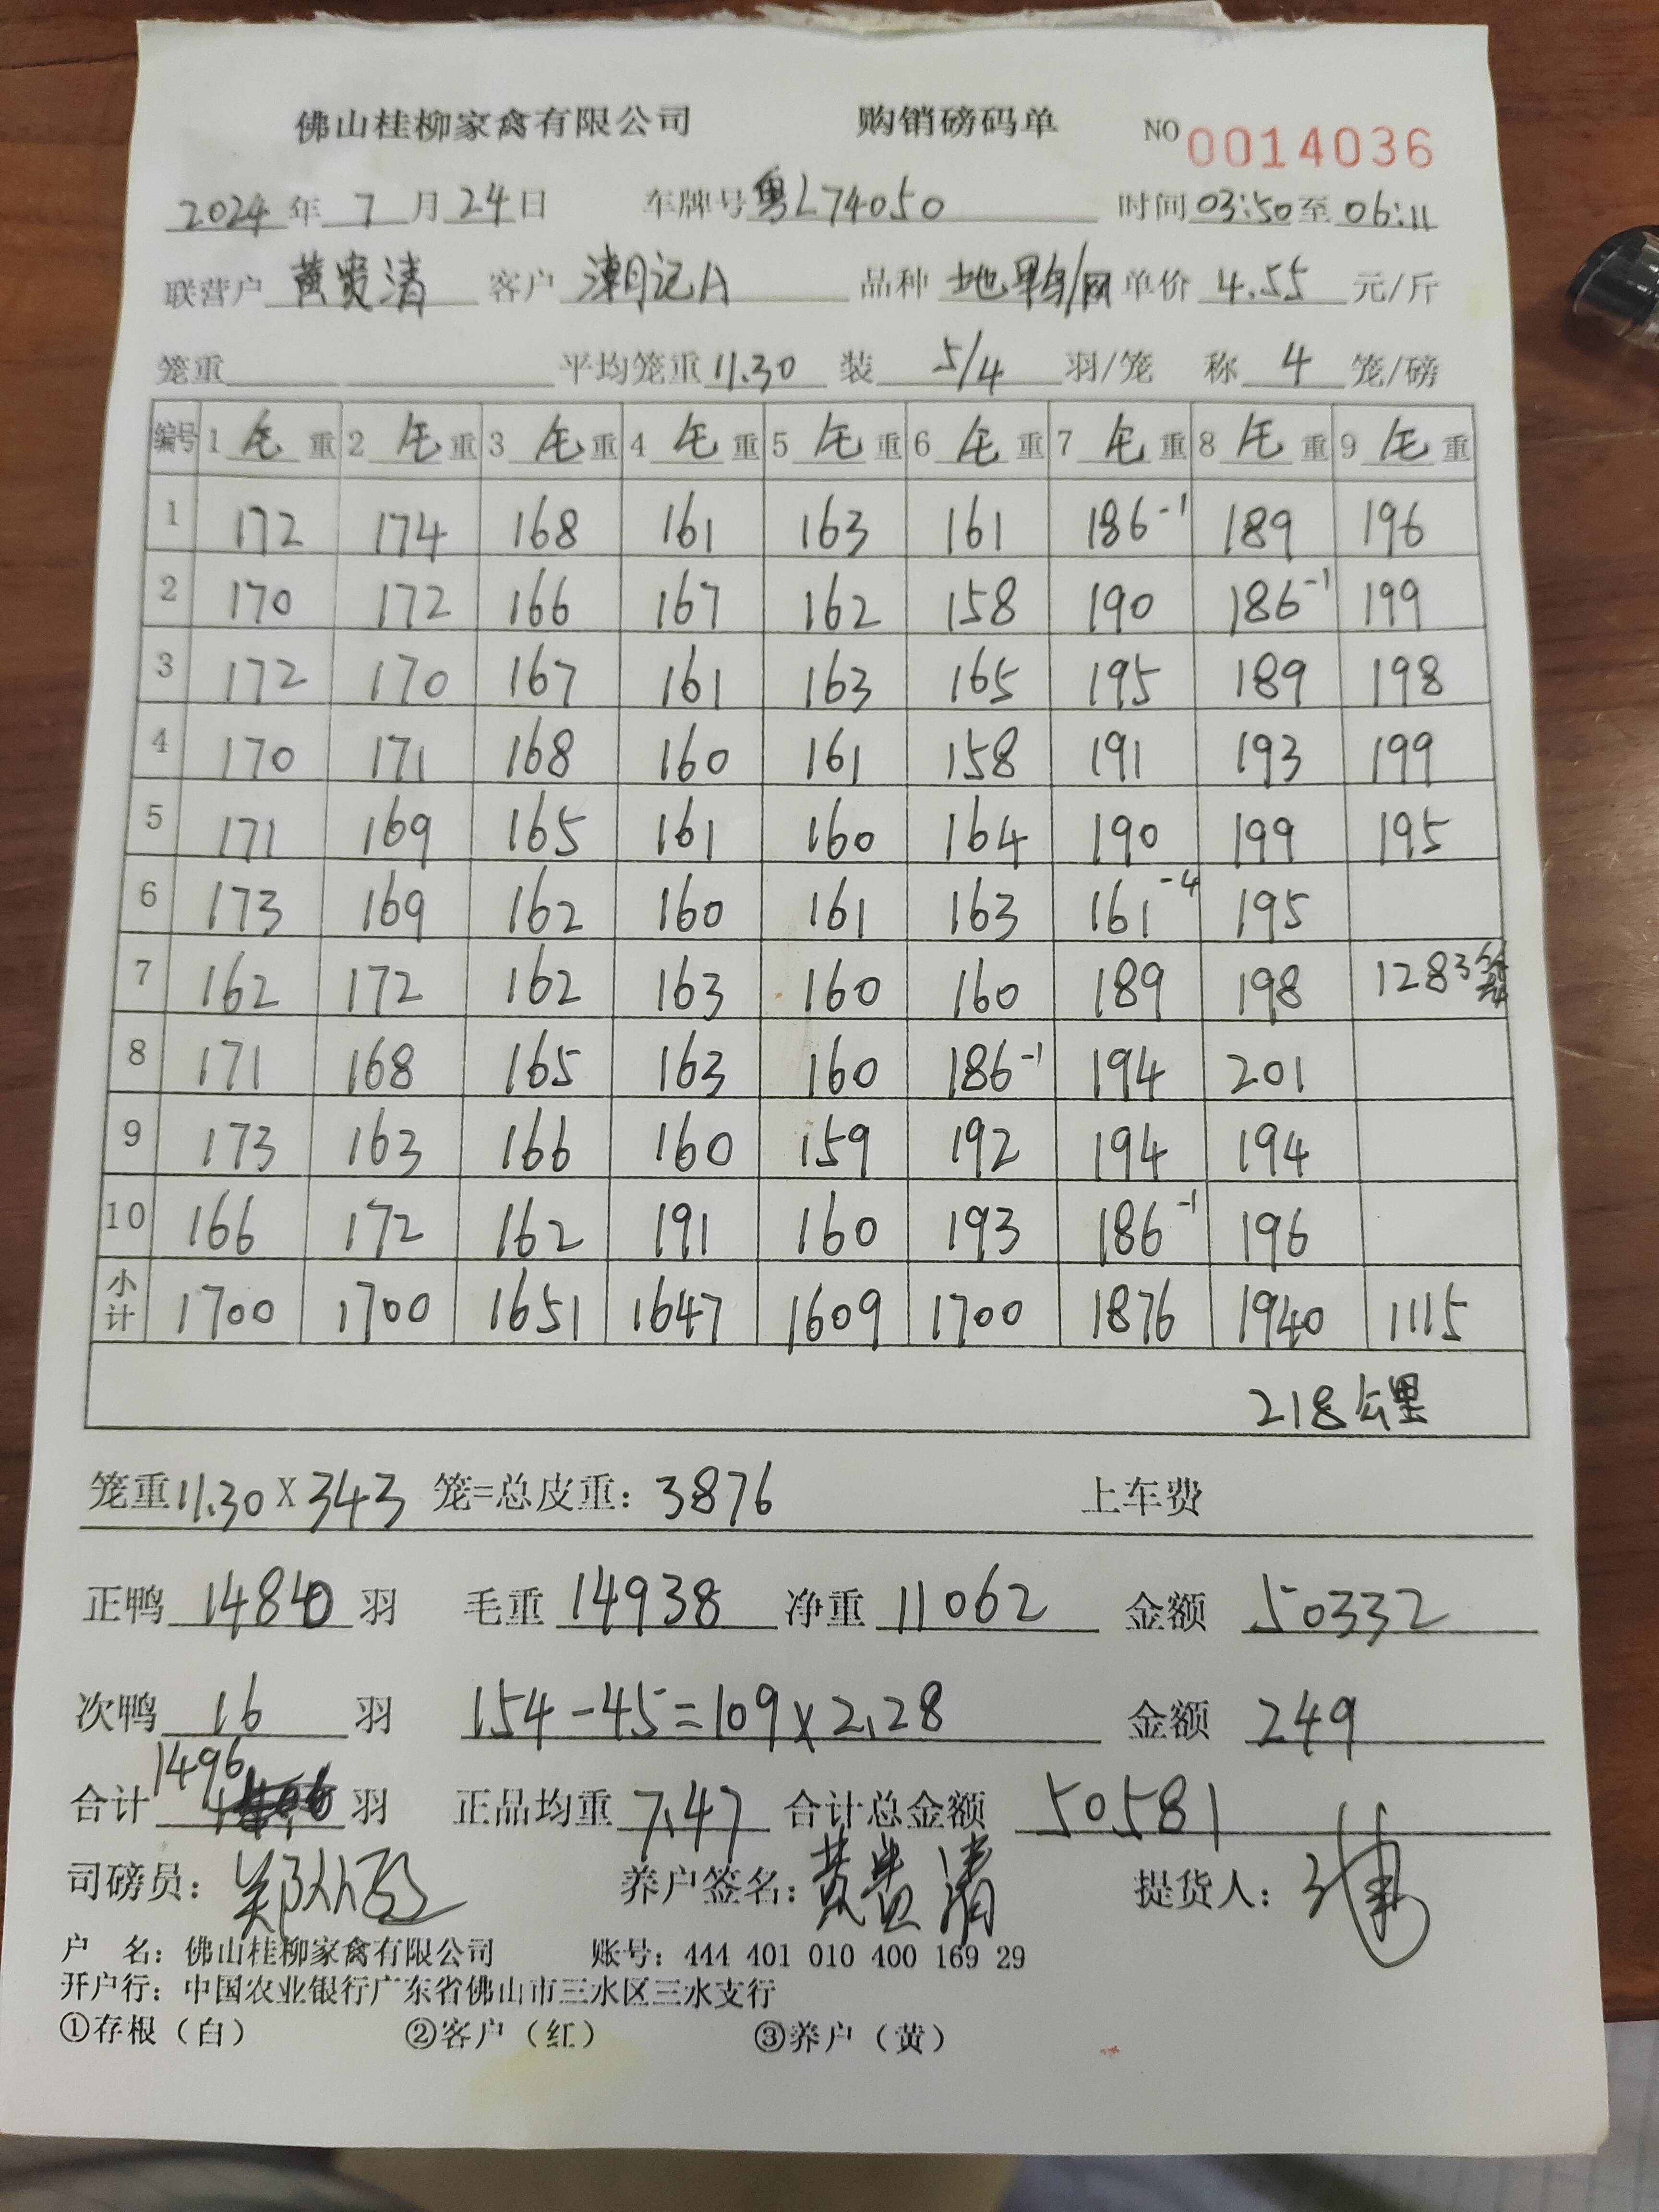 佛山桂柳家禽有限公司 购销磅码单 NO 0014036
2024年 7月24日 车牌号粤L74050 时间03:50至06:11
联营户 黄贵清 客户 潮记A 品种 地早鸭/网 单价 4.55 元/斤
笼重 平均笼重11.30 装 5/4 羽/笼 称 4 笼/磅
编号 1毛重 2毛重 3毛重 4毛重 5毛重 6毛重 7毛重 8毛重 9毛重
1 172 174 168 161 163 161 186-1 189 196
2 170 172 166 167 162 158 190 186-1 199
3 172 170 167 161 163 165 195 189 198
4 170 171 168 160 161 158 191 193 199
5 171 169 165 161 160 164 190 199 195
6 173 169 162 160 161 163 161-4 195
7 162 172 162 163 160 160 189 198 128 3
8 171 168 165 163 160 186-1 194 201
9 173 163 166 160 159 192 194 194
10 166 172 162 191 160 193 186-1 196
小计 1700 1700 1651 1647 1609 1700 1876 1940 1115
218公里
笼重11.30X343 笼=总皮重: 3876 上车费
正鸭 1480 羽 毛重 14938 净重 11062 金额 50332
次鸭 16 羽 154-45=109×2.28 金额 249
合计 1496 羽 正品均重 7.47 合计总金额 50581
司磅员: 养户签名: 黄贵清 提货人:
户 名: 佛山桂柳家禽有限公司 账号: 444 401 010 400 169 29
开户行: 中国农业银行广东省佛山市三水区三水支行
①存根(白) ②客户(红) ③养户(黄)